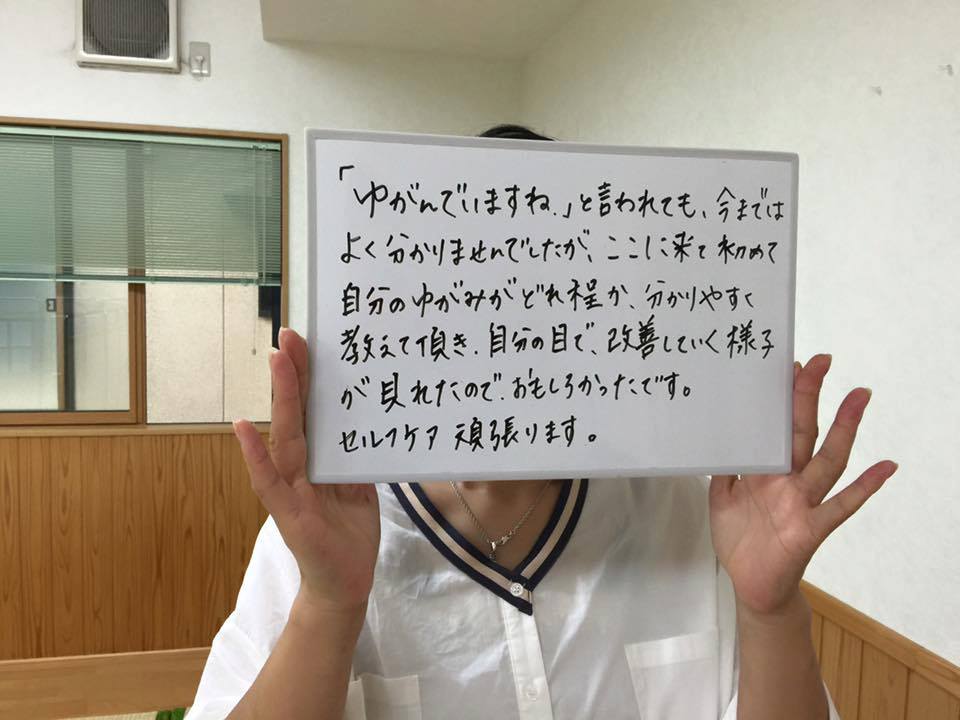 「ゆがんでいますね.」と言われても、今までは
よく分かりませんでしたが、ここに来て初めて
自分のゆがみがどれ程か、分かりやすく
教えて頂き、自分の目で、改善していく様子
が見れたので、おもしろかったです。
セルフケア頑張ります。